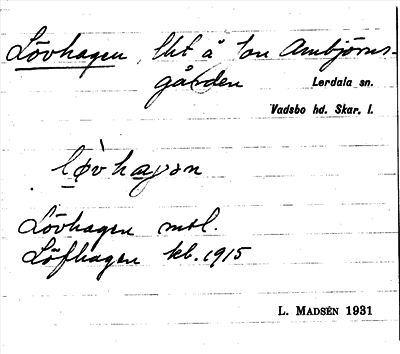 Lövhagen, lht å ton Arnbjörns-
gården Lerdala sn.
Vadsbo hd. Skar. l.
lø̀vhagən
Lövhagen mtl.
Löfhagen kb. 1915
L. MADSÉN 1931